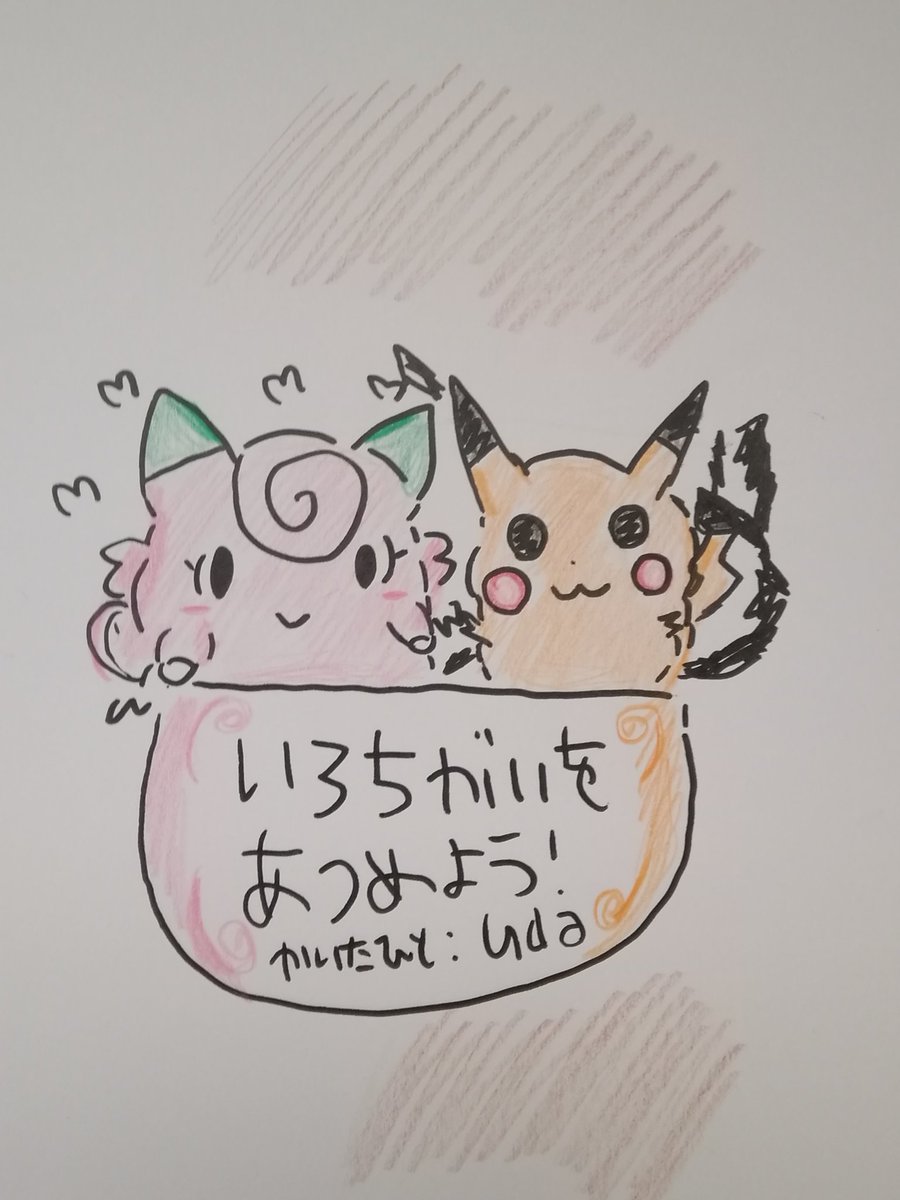 いろちがいを
あつめよう!
かいたひと:uda